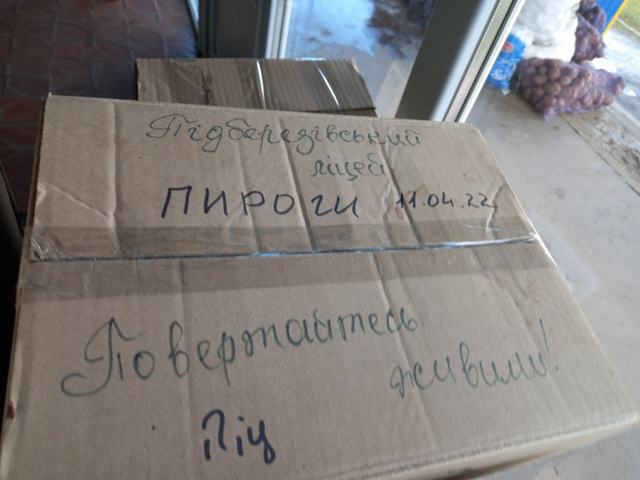 Підберезівський
ліцей
ПИРОГИ 11.04.22
Повертайтесь
живими!